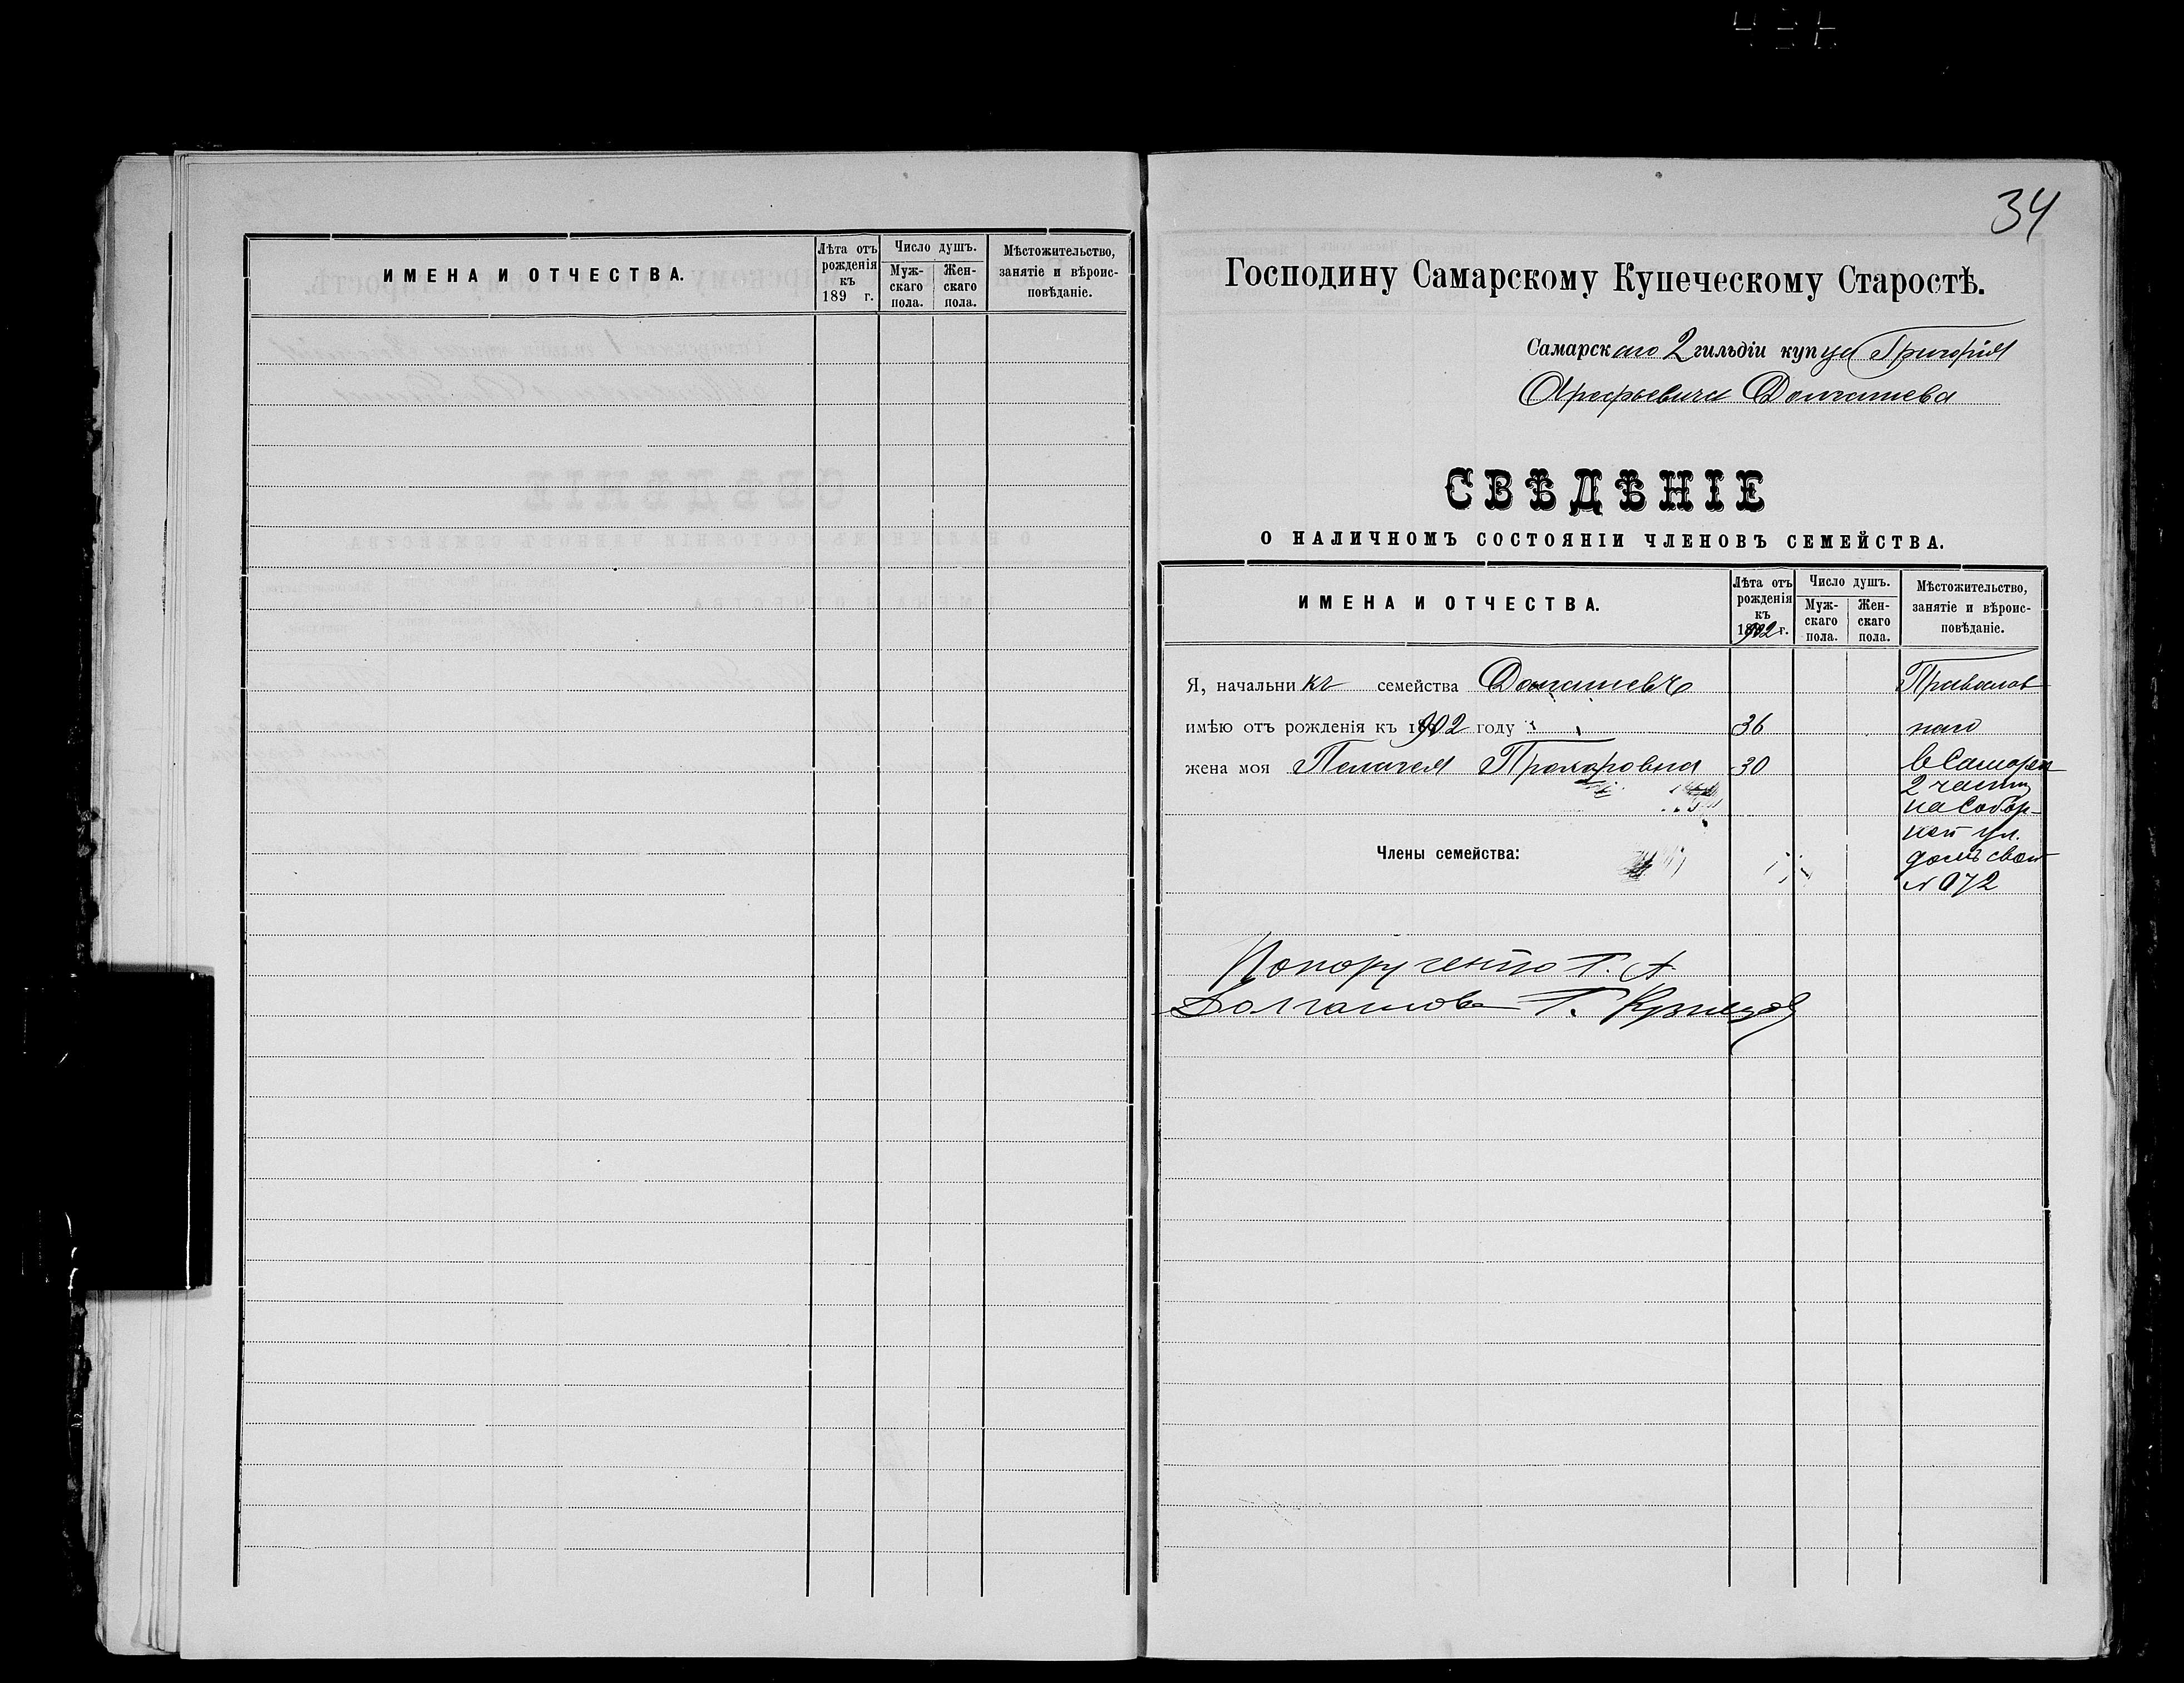 ИМЕНА И ОТЧЕСТВА.
Лѣта отъ рожденія къ 189 г.
Число душъ.
Муж-скаго пола.
Жен-скаго пола.
Мѣстожительство, занятіе и вѣроис-повѣданіе.
34
Господину Самарскому Купеческому Старостѣ.
Самарскаго 2 гильдіи купца Григорія
Арефьевича Долгашева
СВѢДѢНІЕ
О НАЛИЧНОМЪ СОСТОЯНІИ ЧЛЕНОВЪ СЕМЕЙСТВА.
ИМЕНА И ОТЧЕСТВА.
Лѣта отъ рожденія къ 1902 г.
Число душъ.
Муж-скаго пола.
Жен-скаго пола.
Мѣстожительство, занятіе и вѣроис-повѣданіе.
Я, начальникъ семейства Долгашевъ Православ
имѣю отъ рожденія къ 1902 году 36 наго
жена моя Пелагея Прохоровна 30 в Самарѣ
2 части
на Собор-
ной ул.
Члены семейства: домъ свой
По порученію Г. А.
Долгашова Г. Кузнецов